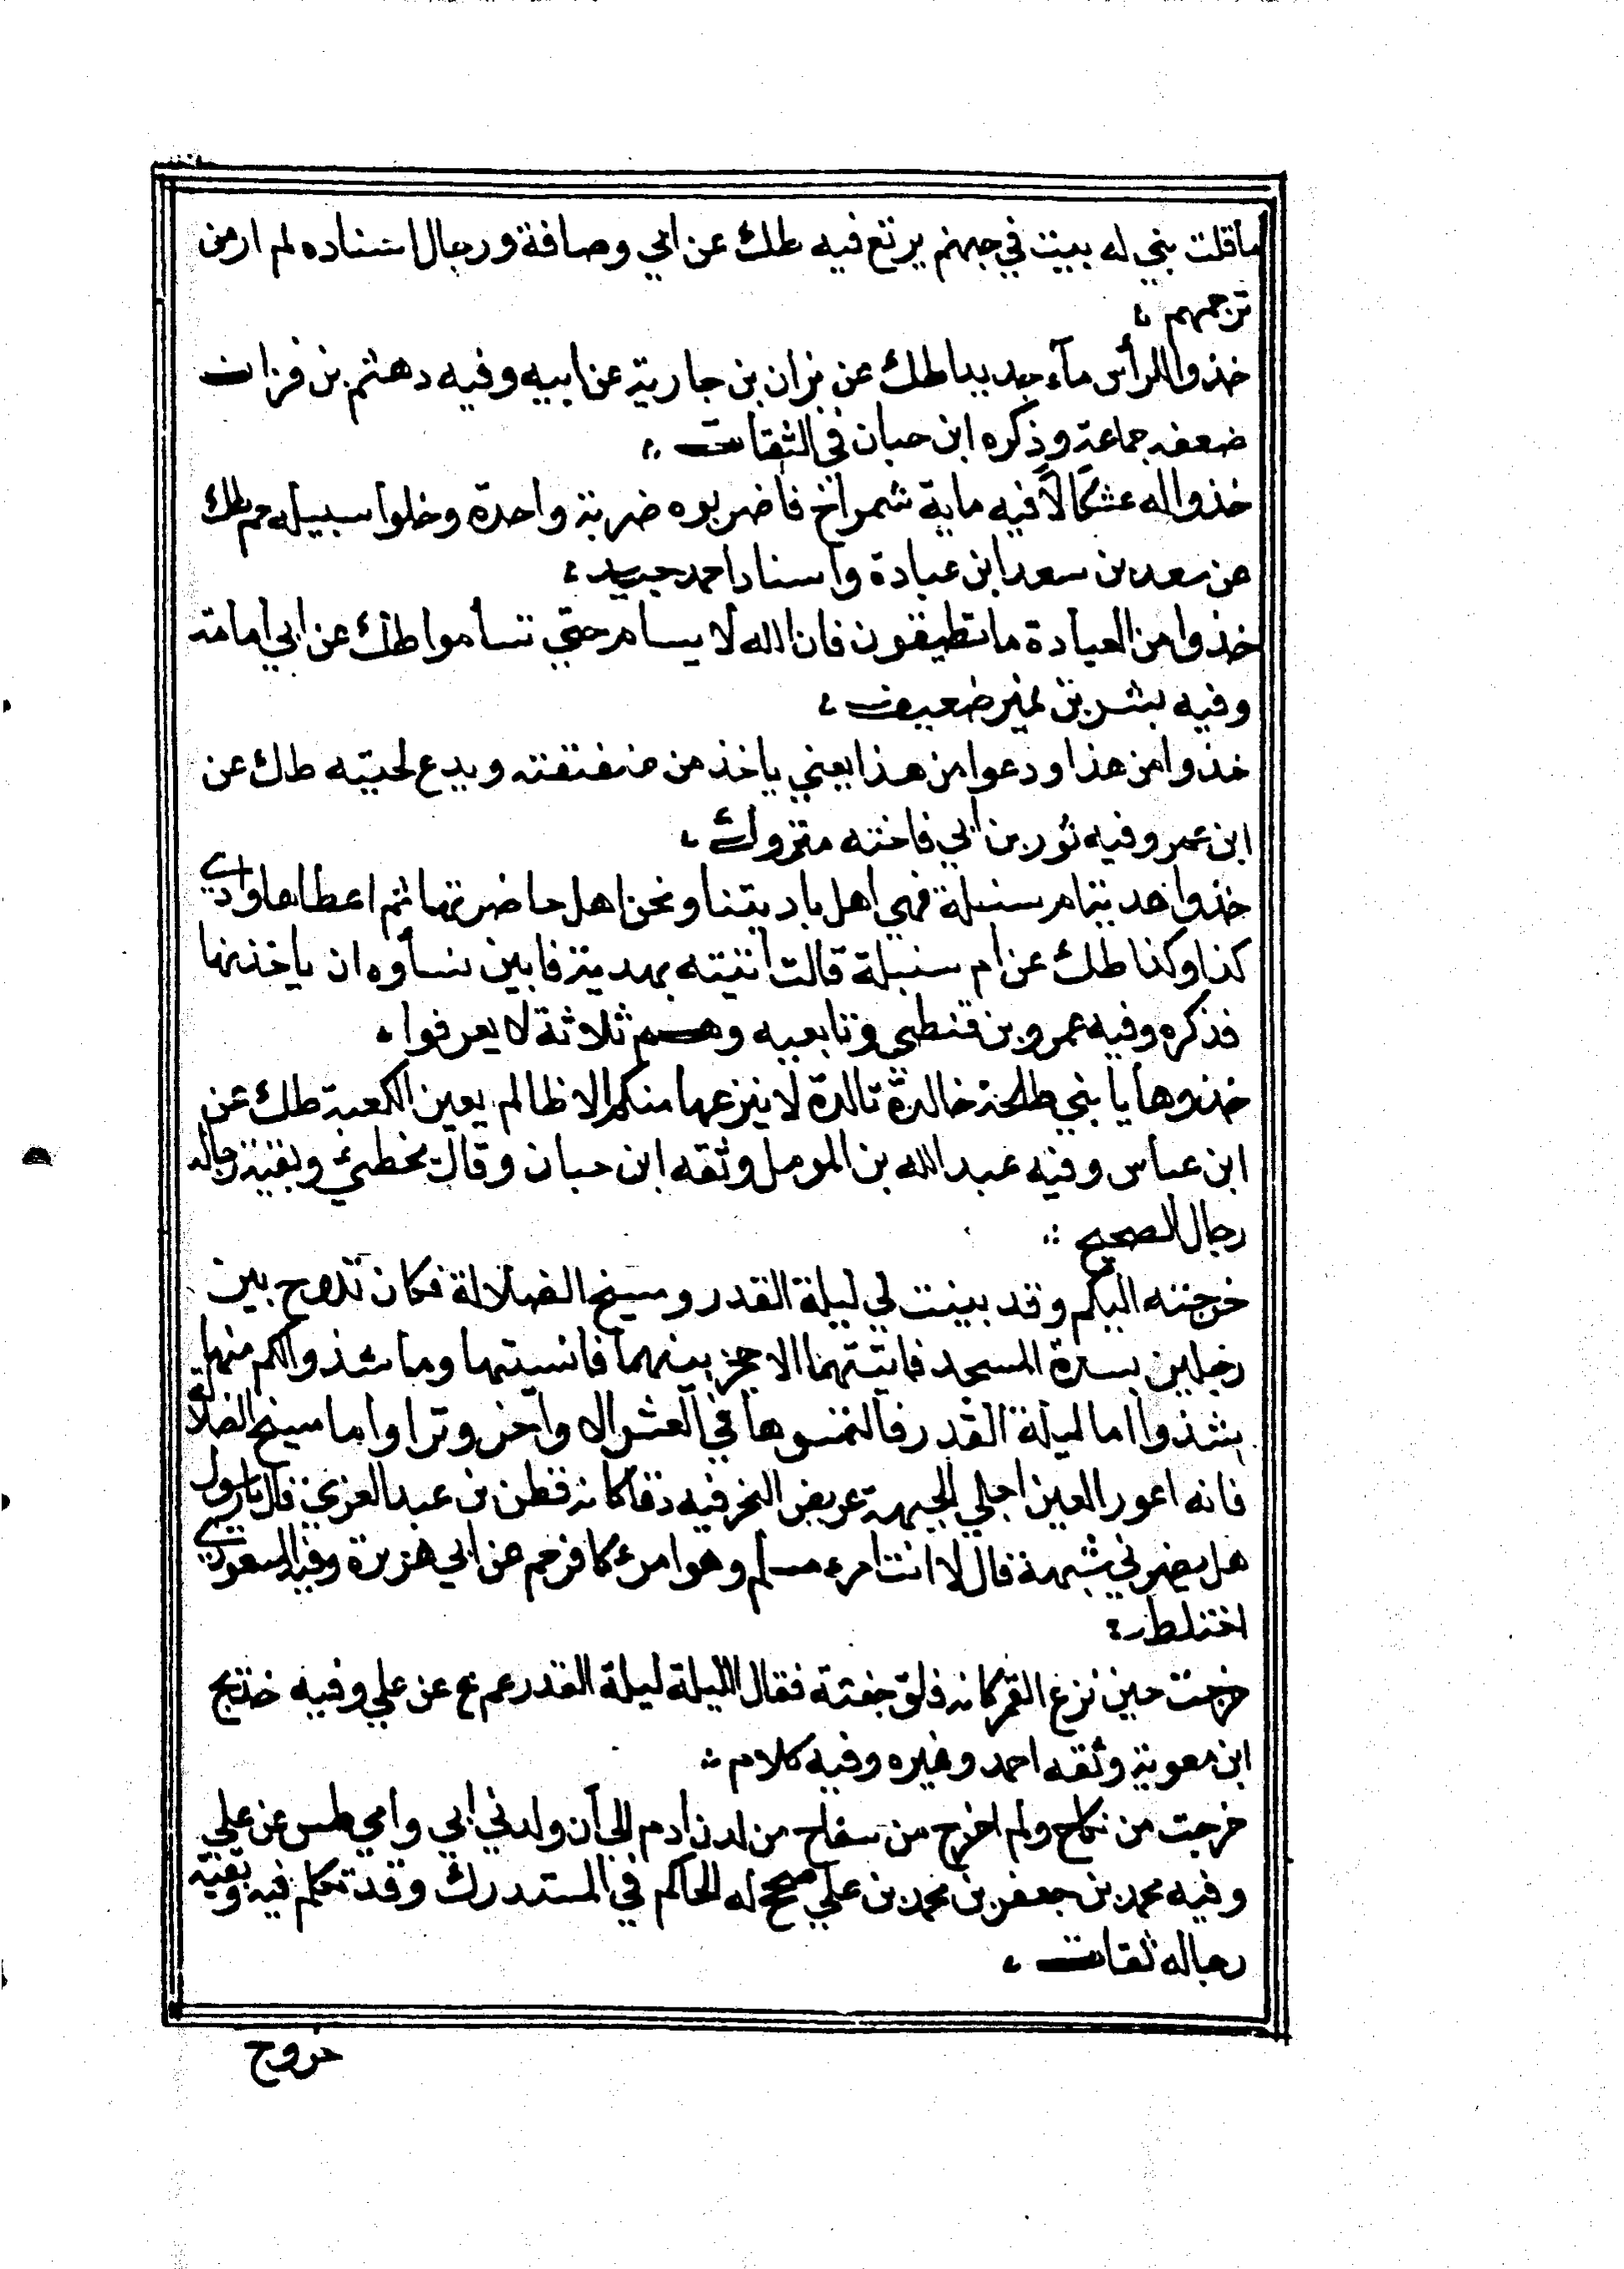 ماقلت بني له بيت في جهنم يرتع فيه طك عن ابي وصافة ورجال اسناده لم ار من
ترجمهم
خذوا للرأس ماء جديدا طك عن نزان بن جارية عن ابيه وفيه دهثم بن قران
ضعفه جماعة وذكره ابن حبان في الثقات
خذوا له عشكالا فيه ماية شمراخ فاضربوه ضربة واحدة وخلوا سبيله حم طك
عن سعد بن سعد ابن عبادة واسناد احمد جيد
خذوا من العبادة ما تطيقون فان الله لا يسام حتي تسأموا طك عن ابي امامة
وفيه بشر بن نمير ضعيف
خذوا من هذا ودعوا من هذا يعني ياخذ من عنفقته ويدع لحيته طك عن
ابن عمر وفيه ثور بن ابي فاخته متروك
خذوا هدية ام سنبلة فهي اهل باديتنا ونحن اهل حاضرتها ثم اعطاها وادي
كذا وكذا طك عن ام سنبلة قالت اتيته بهدية فابين نساوه ان ياخذنها
فذكره وفيه عمرو بن قنطي وتابعيه وهم ثلاثة لا يعرفوا
خذوها يا بني طلحة خالدة تالدة لا ينزعها منكم الا ظالم يعين الكعبة طك عن
ابن عباس وفيه عبد الله بن المومل وثقه ابن حبان وقال يخطئ وبقية رجاله
رجال الصحيح
خرجته اليكم وقد بينت لي ليلة القدر ومسيخ الضلالة فكان تلاح بين
رجلين بسدة المسجد فاتيتهما لاحجز بينهما فانسيتها وساشذوا لكم منها
شذوا اما ليلة القدر فالتمسوها في العشر الاواخر وترا واما مسيخ الضلالة
فانه اعور العين اجلي الجبهة عريض النحر فيه دفا كانه قطن بن عبد العزي قال يارسول
هل يضرني شبهه قال لا انت امرء مسلم وهو امرء كافر حم عن ابي هريرة وفيه المسعودي
اختلط
خرجت حين نزع القمر كانه فلق جفنة فقال الليلة ليلة القدر عم ع عن علي وفيه خديج
ابن معوية وثقه احمد وغيره وفيه كلام
خرجت من نكاح ولم اخرج من سفاح من لدن ادم الي ان ولدني ابي وامي طس عن علي
وفيه محمد بن جعفر بن محمد بن علي صحح له الحاكم في المستدرك وقد تكلم فيه وبقية
رجاله ثقات
خروج